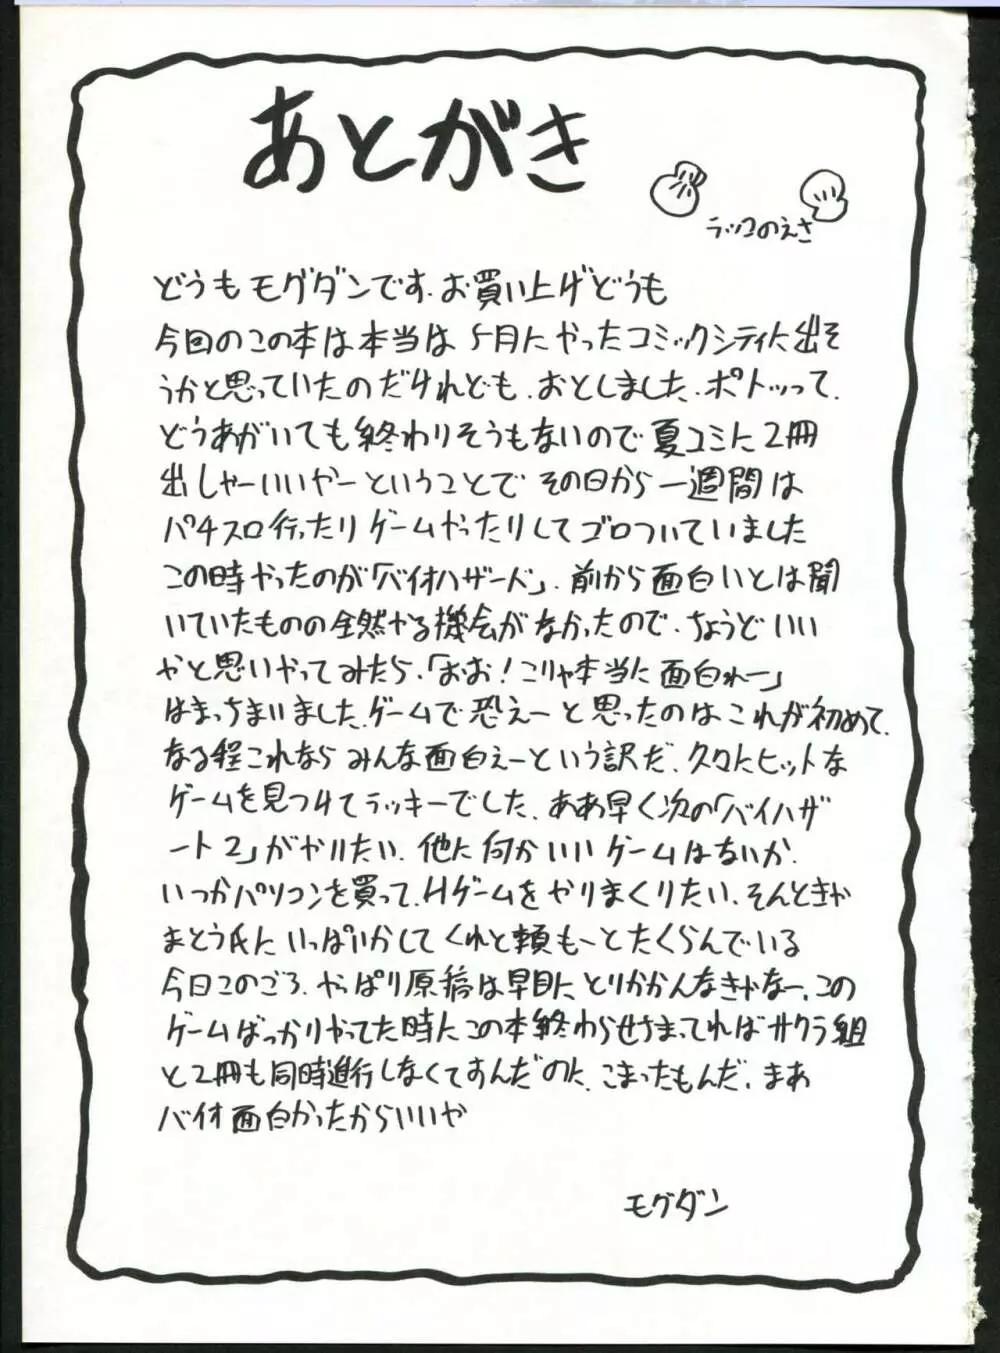 あとがき
ラッコのえさ
どうもモグダンです.お買い上げどうも
今回のこの本は本当は5月にやったコミックシティに出そ
うかと思っていたのだけれども.おとしました.ポトッって.
どうあがいても終わりそうもないので夏コミに2冊
出しゃーいいやーということでその日から一週間は
パチスロ行ったりゲームやったりしてゴロついていました
この時やったのが「バイオハザード」.前から面白いとは聞
いていたものの全然やる機会がなかったので.ちょうどいい
やと思いやってみたら.「おお!こりゃ本当に面白れー」
はまっちまいました.ゲームで恐えーと思ったのはこれが初めて.
なる程これならみんな面白えーという訳だ.久々にヒットな
ゲームを見つけてラッキーでした.ああ早く次の「バイハザ
ード2」がやりたい.他に何かいいゲームはないか.
いつかパソコンを買って.Hゲームをやりまくりたい.そんときゃ
まとう氏にいっぱいかしてくれと頼もーとたくらんでいる
今日このごろ.やっぱり原稿は早目にとりかかんなきゃなー.この
ゲームばっかりやってた時にこの本終わらせさまってればサクラ組
と2冊も同時進行しなくてすんだのに.こまったもんだ.まあ
バイオ面白かったからいいや
モグダン